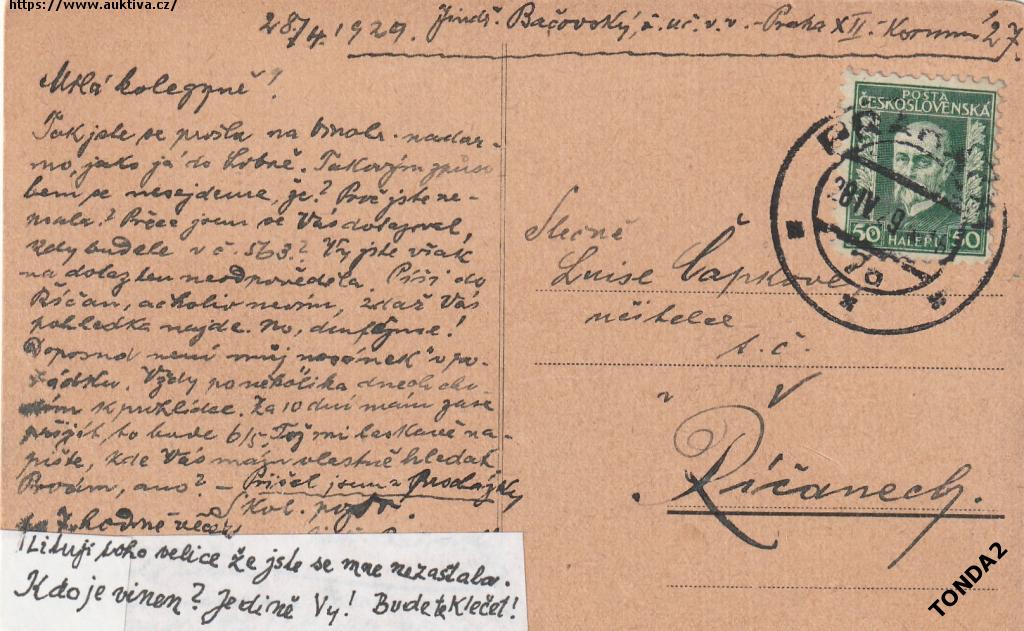 https://www.auktiva.cz/
28/4. 1929. Jindř. Bačovský, ř. uč. v. v. - Praha XII. - Korunní 27.
Milá kolegyně!
Tak jste se prošla na nadar-
mo, jako já do Libně. Takovým způso
bem se nesejdeme, že? Proč jste ne-
psala? Přece jsem se Vás dotazoval,
kdy budete v č. 563? Vy jste však
na dotaz ten neodpověděla. Píši do
Říčan, ačkoliv nevím, zdaž Vás
pohledka najde. No, doufejme!
Doposud není můj "nosánek" v po-
řádku. Vždy po několika dnech cho-
dím k prohlídce. Za 10 dní mám zase
přijít, to bude 6/5. Tož mi laskavě na-
pište, kde Vás mám vlastně hledat
Prosím, ano? - Přišel jsem z prodejny
Kol.
7 hodině večer
Lituji toho velice že jste se mne nezastala.
Kdo je vinen? Jedině Vy! Budete klečet!
POŠTA
ČESKOSLOVENSKÁ
50 HALÉŘŮ 50
PRAHA
28 IV
Slečně
Luise Čapkové
učitelce
t. č.
v
Říčanech.
TONDA2